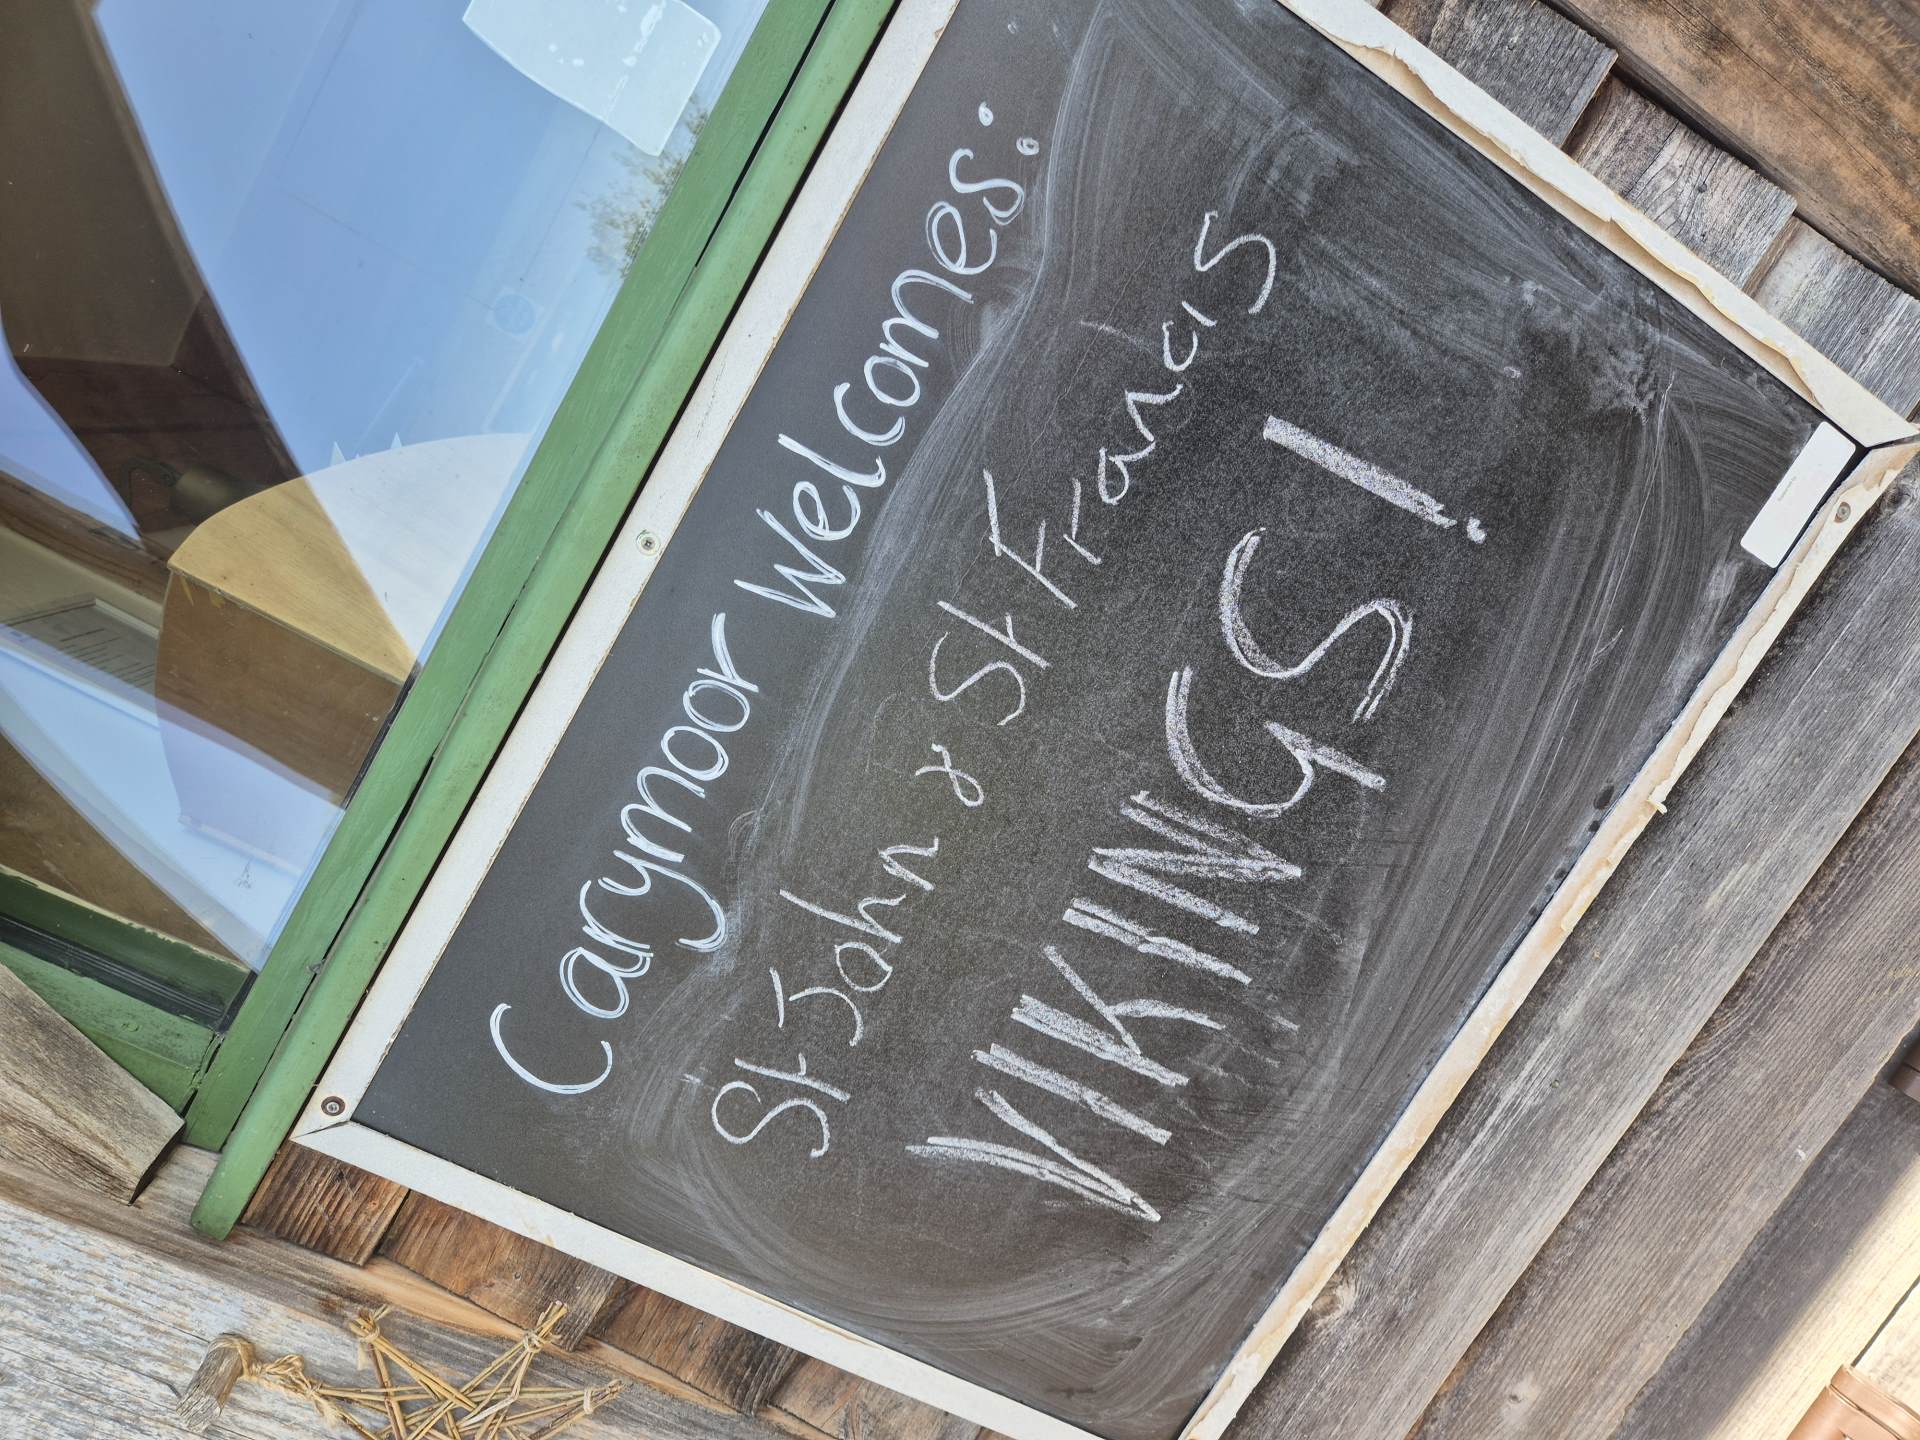 Carymoor Welcomes:
St John & St Francis
VIKINGS!